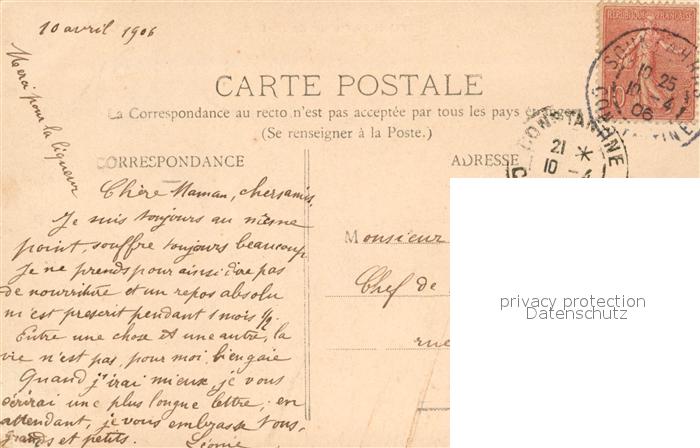 10 avril 1906
Merci pour la liqueur
REPUBLIQUE FRANÇAISE
10
10 25
10 -4
06
CONSTANTINE
CARTE POSTALE
La Correspondance au recto n'est pas acceptée par tous les pays
(Se renseigner à la Poste.)
CONSTANTINE
21 *
10 -4
CORRESPONDANCE
ADRESSE
Chère Maman, chers amis,
Je suis toujours au même
point, souffre toujours beaucoup
Je ne prends pour ainsi dire pas
de nourriture et un repos absolu
m'est prescrit pendant 1 mois 1/2.
Entre une chose et une autre, la
vie n'est pas, pour moi, bien gaie
Quand j'irai mieux, je vous
écrirai une plus longue lettre, en
attendant, je vous embrasse tous,
grands et petits. Léonie
Monsieur
Chef de
rue
privacy protection
Datenschutz